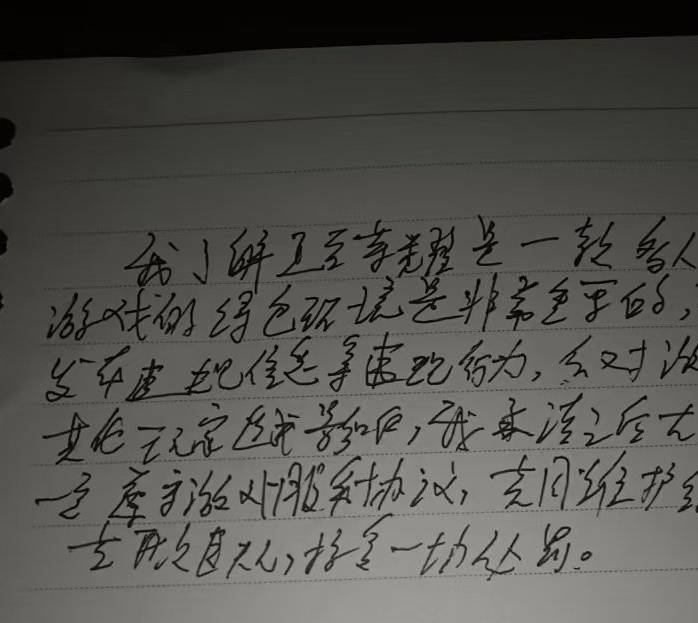 我了解王者荣耀是一款多人
游戏的绿色环境是非常重要的，
发布违规信息等违规行为，会对游
其他玩家造成影响，我承诺之后
一定遵守游戏服务协议，共同维护
违规，接受一切处罚。